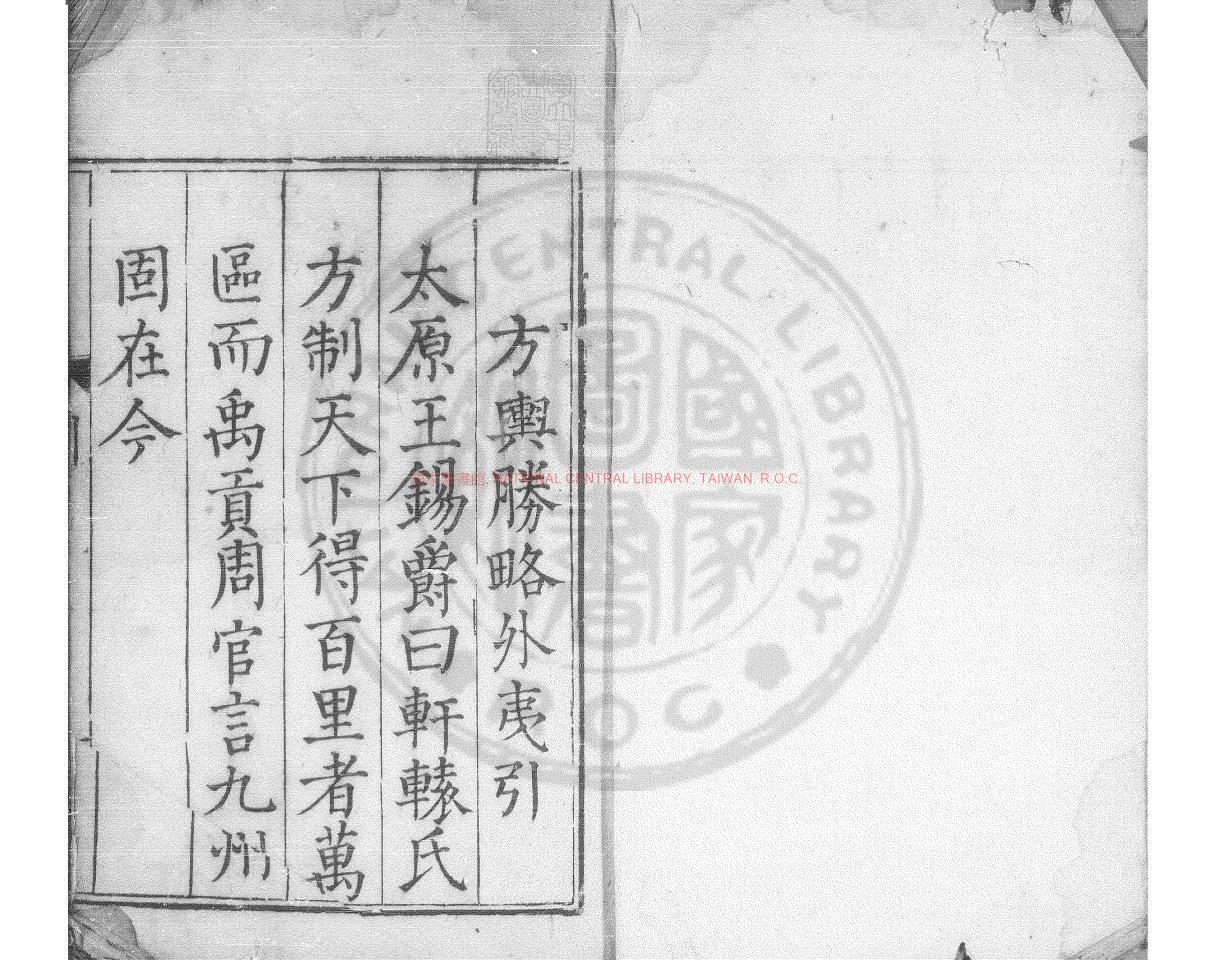 方輿勝略外夷引
太原王錫爵曰軒轅氏
方制天下得百里者萬
區而禹貢周官言九州
固在今
NATIONAL CENTRAL LIBRARY, TAIWAN, R.O.C.
CENTRAL LIBRARY
國家圖書
R O C